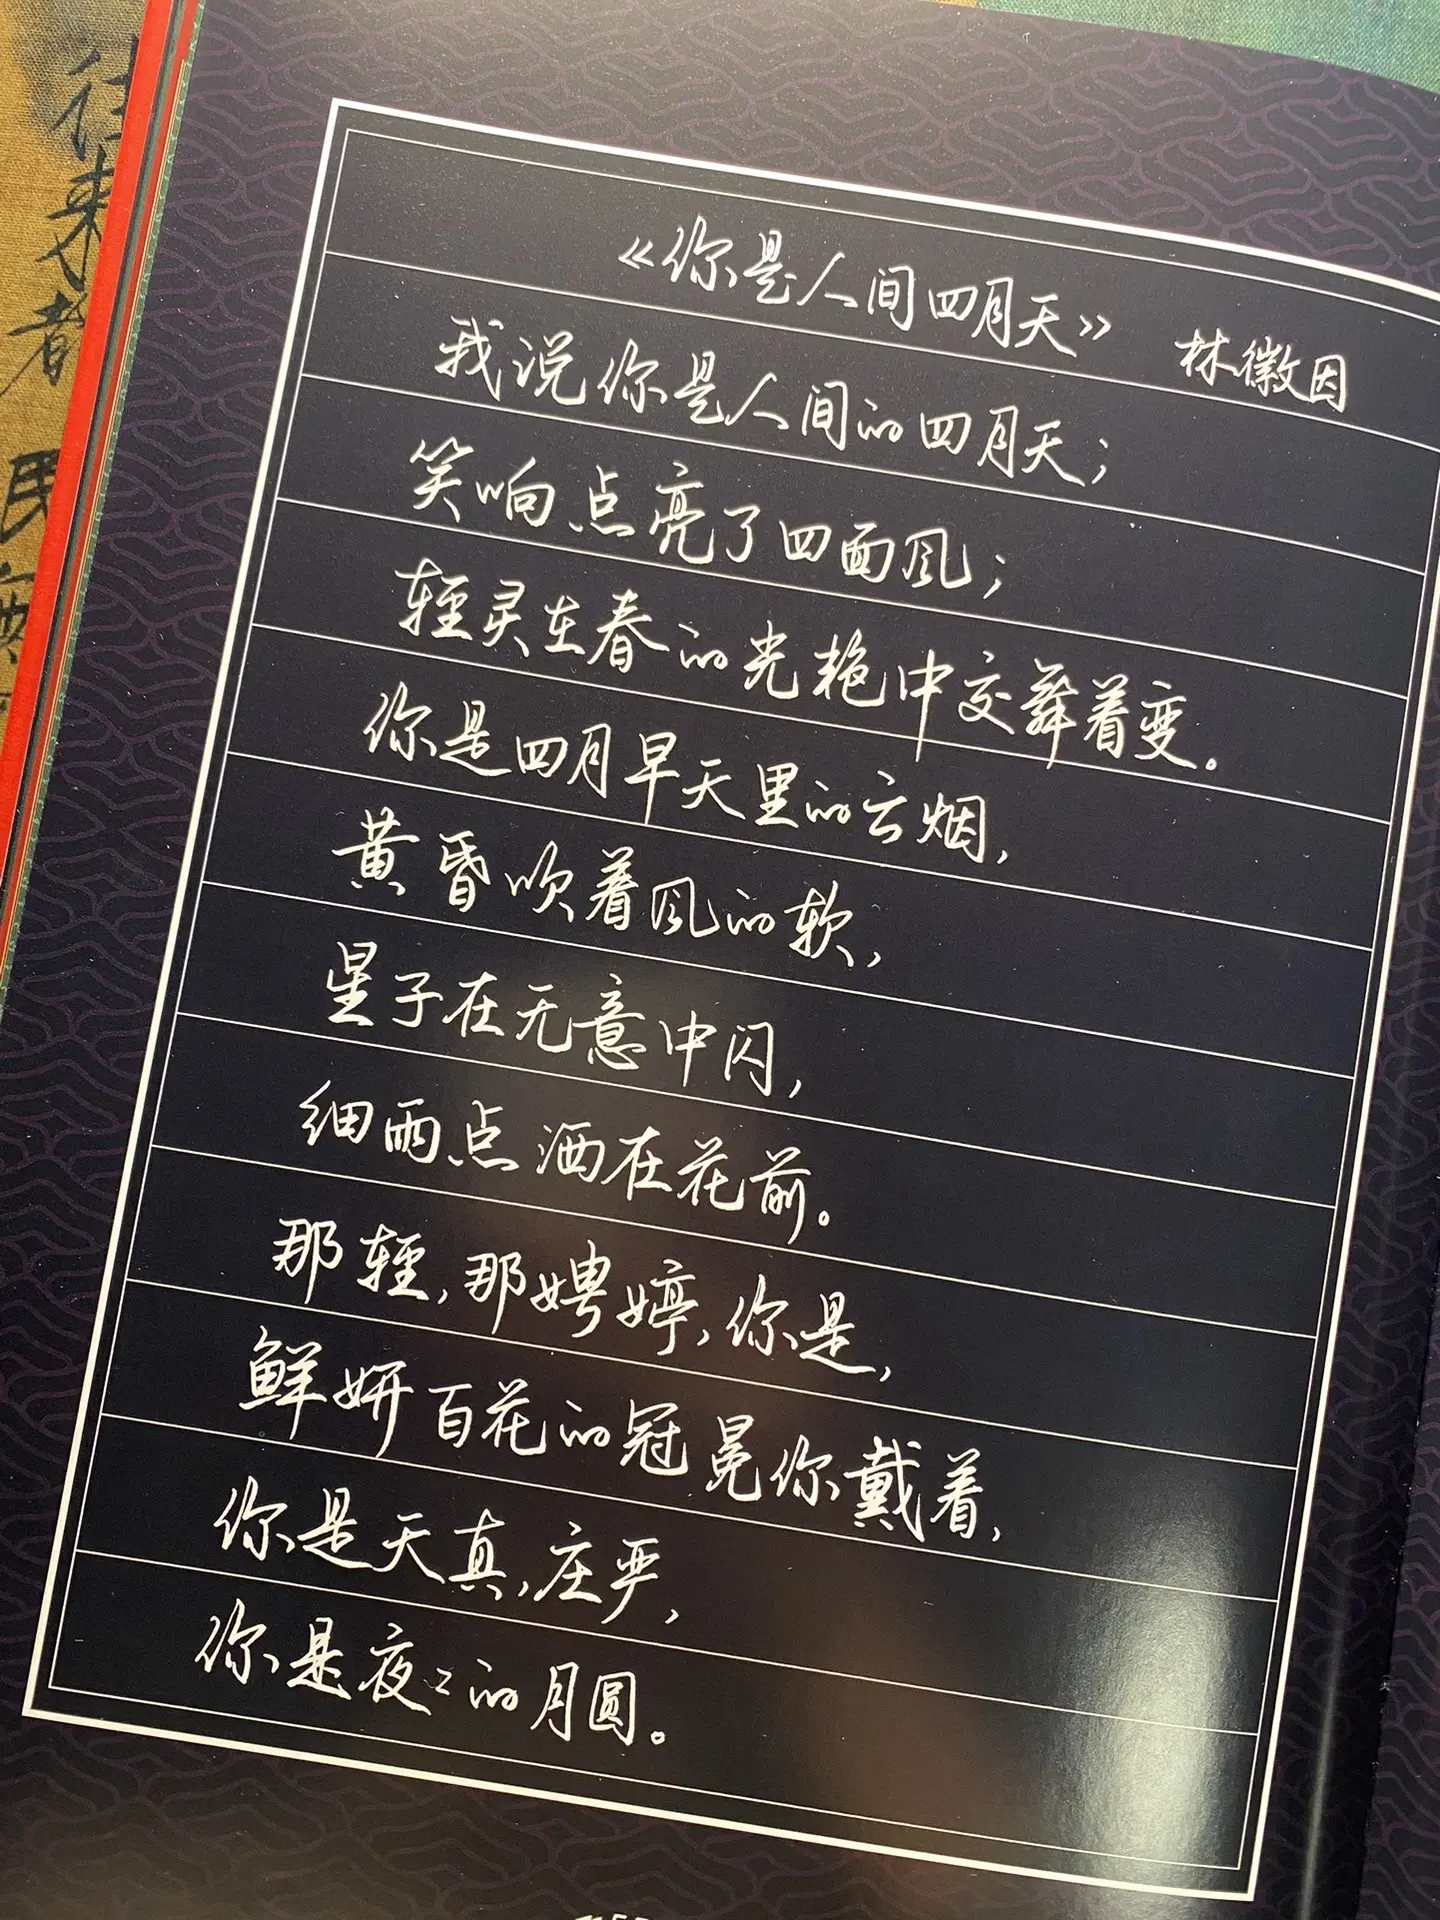 《你是人间四月天》 林徽因
我说你是人间的四月天；
笑响点亮了四面风；
轻灵在春的光艳中交舞着变。
你是四月早天里的云烟，
黄昏吹着风的软，
星子在无意中闪，
细雨点洒在花前。
那轻，那娉婷，你是，
鲜妍百花的冠冕你戴着，
你是天真，庄严，
你是夜々的月圆。
往来
民